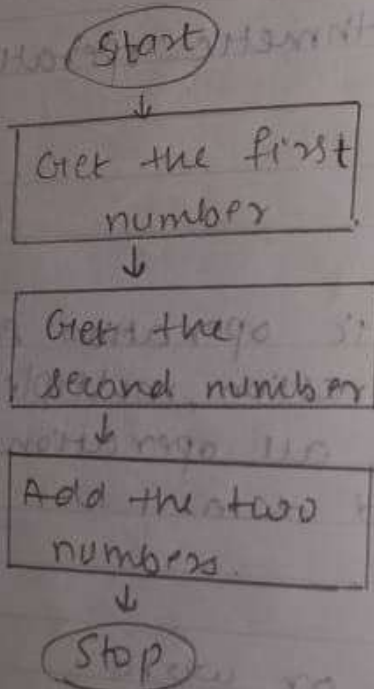 Start
Get the first
number.
Get the
second number
Add the two
numbers.
Stop